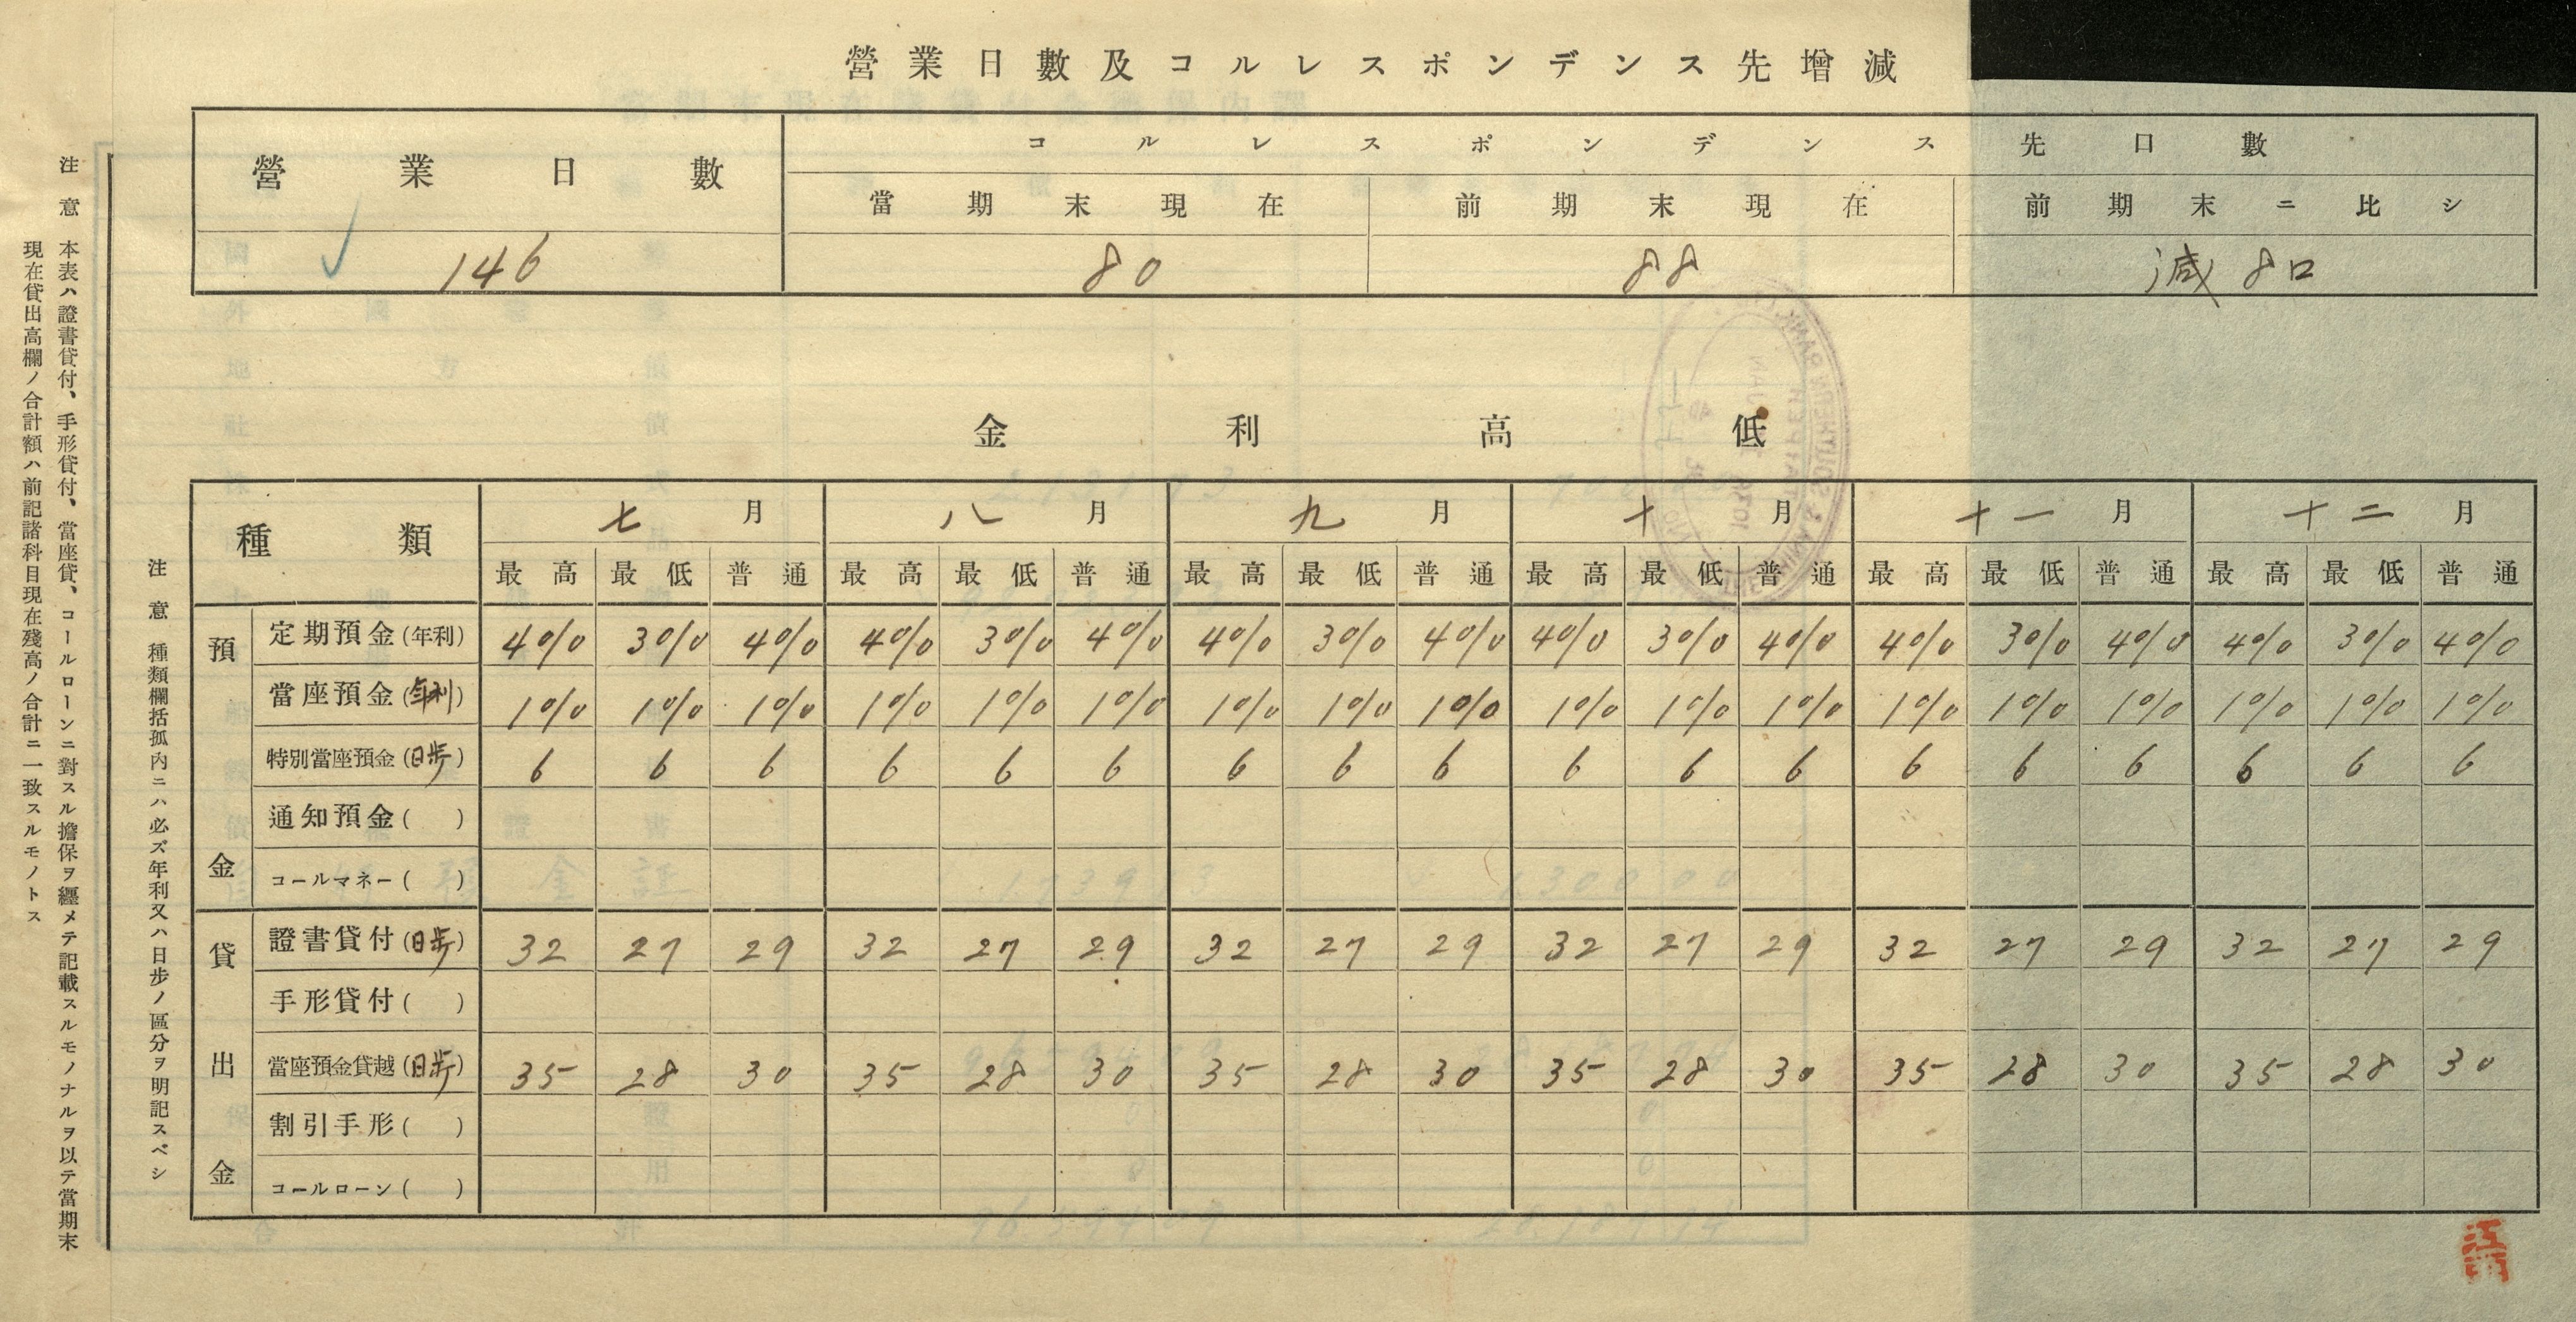 營業日數及コルレスポンデンス先增減
營業日數 コルレスポンデンス先口數
當期末現在 前期末現在 前期末ニ比シ
146 80 88 減 8口
金利高低
種類 七月 八月 九月 十月 十一月 十二月
最高 最低 普通 最高 最低 普通 最高 最低 普通 最高 最低 普通 最高 最低 普通 最高 最低 普通
預金
定期預金(年利) 4% 3% 4% 4% 3% 4% 4% 3% 4% 4% 3% 4% 4% 3% 4% 4% 3% 4%
當座預金(年利) 1% 1% 1% 1% 1% 1% 1% 1% 1% 1% 1% 1% 1% 1% 1% 1% 1% 1%
特別當座預金(日歩) 6 6 6 6 6 6 6 6 6 6 6 6 6 6 6 6 6 6
通知預金( )
コールマネー( )
貸出金
證書貸付(日歩) 32 27 29 32 27 29 32 27 29 32 27 29 32 27 29 32 27 29
手形貸付( )
當座預金貸越(日歩) 35 28 30 35 28 30 35 28 30 35 28 30 35 28 30 35 28 30
割引手形( )
コールローン( )
注意 種類欄括孤内ニハ必ズ年利又ハ日歩ノ區分ヲ明記スベシ
注意 本表ハ證書貸付、手形貸付、當座貸、コールローンニ對スル擔保ヲ纒メテ記載スルモノナルヲ以テ當期末
現在貸出高欄ノ合計額ハ前記諸科目現在殘高ノ合計ニ一致スルモノトス